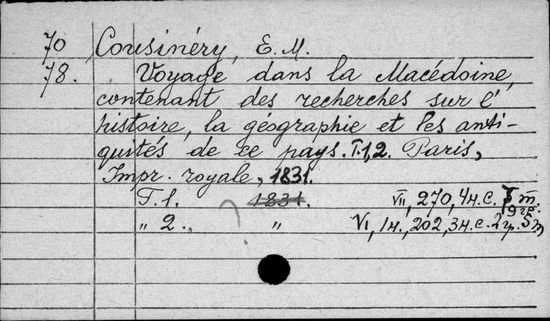 70 Cousinéry, E. M.
78. Voyage dans la Macédoine,
contenant des recherches sur l'
histoire, la géographie et les anti-
quités de ce pays. T.1,2. Paris,
Impr. royale, 1831.
T. 1. 1831. VII, 270, 4н.с. 5 m.
19 гр.
„ 2. „ VI, 1н., 202, 3н.с. 2 гр. 5 m